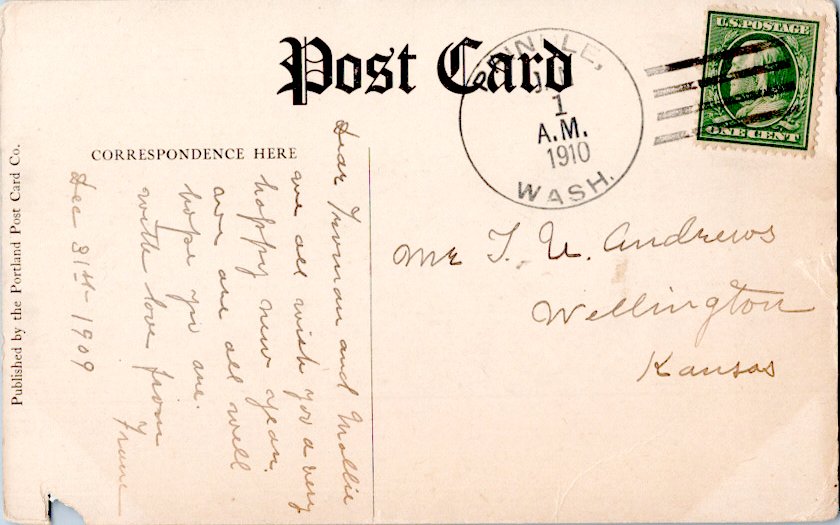 Post Card
CORRESPONDENCE HERE
Published by the Portland Post Card Co.
U.S. POSTAGE
ONE CENT
1
A.M.
1910
WASH.
Mr T. U. Andrews
Wellington
Kansas
Dear Truman and Mollie
we all wish you a very
happy new year.
we are all well
hope you are.
with love from
Dec 31st- 1909